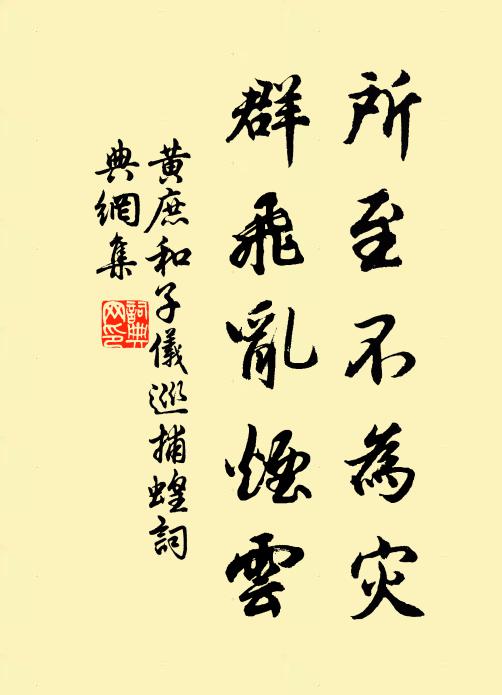 所至不為災
群飛亂煙雲
黃庶和子儀巡捕蝗詞
典網集
詞典網印